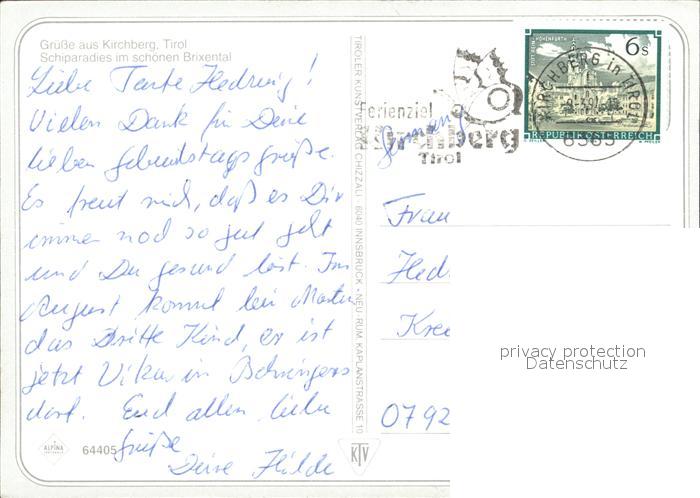 Grüße aus Kirchberg, Tirol
Schiparadies im schönen Brixental
Liebe Tante Hedwig!
Vielen Dank für Deine
lieben Geburtstagsgrüße.
Es freut mich, daß es Dir
immer noch so gut geht
und Du gesund bist. Im
August kommt bei Martin
das Dritte Kind, er ist
jetzt Vikar in
dorf. Und allen liebe
Grüße
Deine Hilde
ALPINA
64405
TIROLER KUNSTVERLAG CHIZZALI · 6040 INNSBRUCK - NEU-RUM, KAPLANSTRASSE 10
KTV
Ferienziel
Kirchberg
Tirol
Germany
6s
REPUBLIK ÖSTERREICH
KIRCHBERG in TIROL
6365
Frau
Hed
Kre
0792
privacy protection
Datenschutz